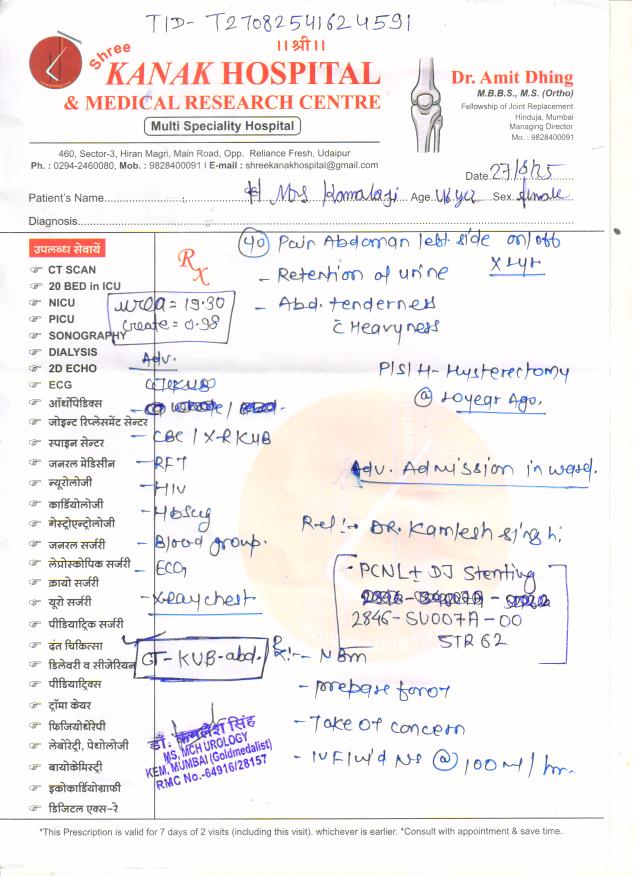 TID- T27082541624591
॥ श्री ॥
Shree
KANAK HOSPITAL
& MEDICAL RESEARCH CENTRE
Multi Speciality Hospital
Dr. Amit Dhing
M.B.B.S., M.S. (Ortho)
Fellowship of Joint Replacement
Hinduja, Mumbai
Managing Director
Mo. : 9828400091
460, Sector-3, Hiran Magri, Main Road, Opp. Reliance Fresh, Udaipur
Ph. : 0294-2460080, Mob. : 9828400091 I E-mail : shreekanakhospital@gmail.com
Date 27/8/25
Patient's Name Mrs Age 46 yrs Sex female
Diagnosis
उपलब्ध सेवायें
CT SCAN
20 BED in ICU
NICU
PICU
SONOGRAPHY
DIALYSIS
2D ECHO
ECG
ऑर्थोपेडिक्स
जोइन्ट रिप्लेसमेंट सेन्टर
स्पाइन सेन्टर
जनरल मेडिसीन
न्यूरोलोजी
कार्डियोलोजी
गेस्ट्रोएन्ट्रोलोजी
जनरल सर्जरी
लेप्रोस्कोपिक सर्जरी
क्रायो सर्जरी
यूरो सर्जरी
पीडियाट्रिक सर्जरी
दंत चिकित्सा
डिलेवरी व सीजेरियन
पीडियाट्रिक्स
ट्रॉमा केयर
फिजियोथेरेपी
लेबोरेट्री, पेथोलोजी
बायोकेमिस्ट्री
इकोकार्डियोग्राफी
डिजिटल एक्स-रे
Rx
Pain Abdoman left side on/off
X 1 yr
- Retention of urine
- Abd. tenderness
c̄ Heavyness
urea = 19.30
create = 0.98
P/S/H- Hysterectomy
@ 20 year Ago.
Adv.
- CBC / X-R KUB
- RFT
- HIV
- HbSAg
- Blood group.
- ECG
- X-ray chest
CT-KUB-abd.
Adv. Admission in ward.
Ref :- DR. Kamlesh singh :
- PCNL + DJ Stenting
2846-SU007A-00
STR 62
R :- - NBM
- prepare for OT
- Take OT concern
- IVF NS @ 100 ml/hr.
डॉ. कमलेश सिंह
MS, MCH UROLOGY
KEM, MUMBAI (Goldmedalist)
RMC No.-64916/28157
*This Prescription is valid for 7 days of 2 visits.(including this visit). whichever is earlier. *Consult with appointment & save time.